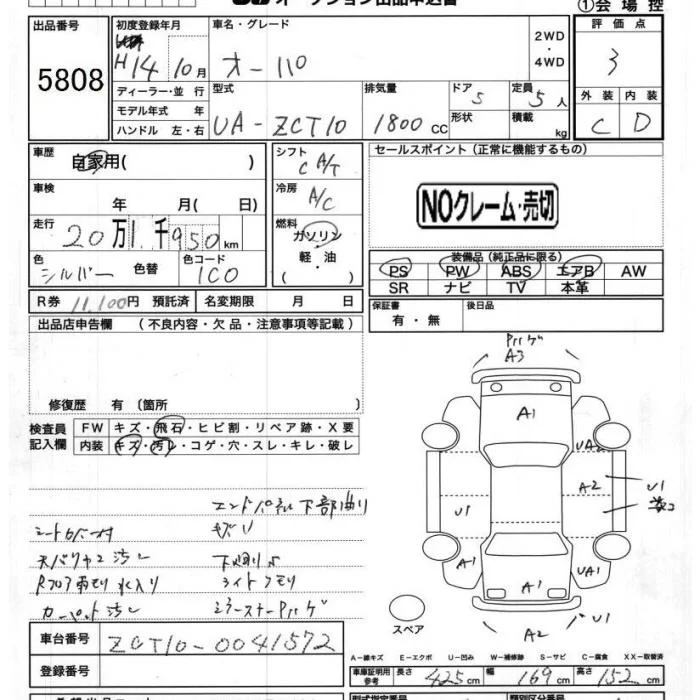 オークション出品申込書
①会場控
出品番号
5808
初度登録年月
H14 10月
車名・グレード
オーパ
2WD・4WD
評価点
3
ディーラー・並行
モデル年式 年
ハンドル 左・右
型式
UA-ZCT10
排気量
1800 CC
ドア 5
形状
定員 5人
積載 kg
外装 内装
C D
車歴
自家用( )
シフト
C A/T
セールスポイント(正常に機能するもの)
NOクレーム・売切
車検
年 月( 日)
冷房
A/C
走行
20万1千950km
燃料
ガソリン
・
軽・油
( )
色
シルバー
色替
色コード
1C0
装備品(純正品に限る)
PS PW ABS エアB AW
SR ナビ TV 本革
R券 11,100円 預託済 名変期限 月 日
保証書
有・無
後日品
出品店申告欄 (不良内容・欠品・注意事項等記載)
修復歴 有 〔箇所 〕
検査員記入欄
FW キズ・飛石・ヒビ割・リペア跡・X要
内装 キズ・汚レ・コゲ・穴・スレ・キレ・破レ
エンドパネル下部曲り
キズU
天バリヤニ汚レ
下廻りS
Rフロア雨モリ水入り
ライトクモリ
カーペット汚レ
車台番号
ZCT10-0041572
登録番号
A3
A1
UA2
A2
U1
U1
A1
UA1
A1
U1
A2
スペア
A-線キズ E-エクボ U-凹み W-補修跡 S-サビ C-腐食 XX-取替済
車庫証明用参考
長さ 425cm
幅 169cm
高さ 152cm
型式指定番号
類別区分番号